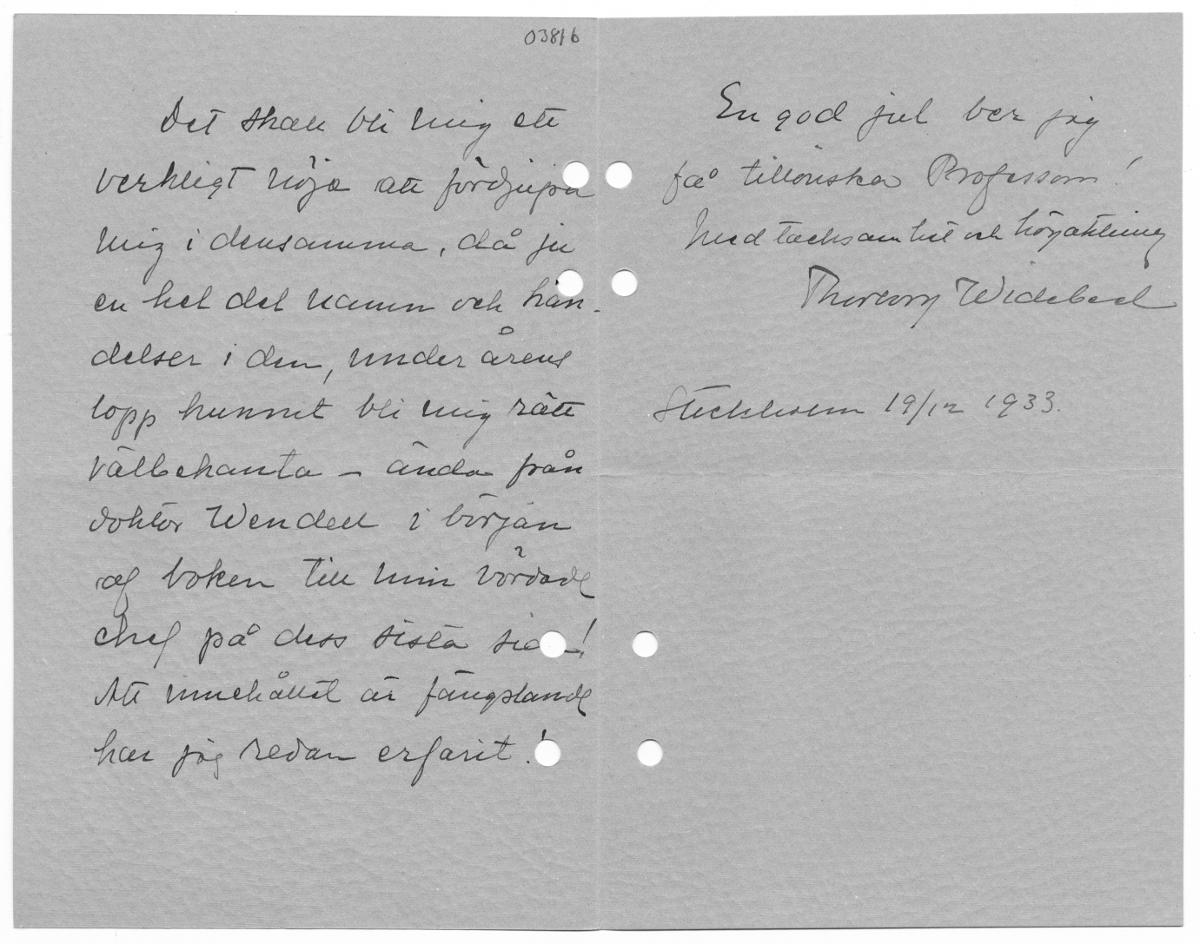 03816
Det skall bli mig ett
verkligt nöje att fördjupa
mig i densamma, då ju
en hel del namn och hän-
delser i den, under årens
lopp hunnit bli mig rätt
välbekanta – ända från
doktor Wendell i början
af boken till min vördade
chef på dess sista sida!
Att innehållet är fängslande
har jag redan erfarit!
En god jul ber jag
få tillönska Professorn!
Med tacksamhet och högaktning
Widebeck
Stockholm 19/12 1933.